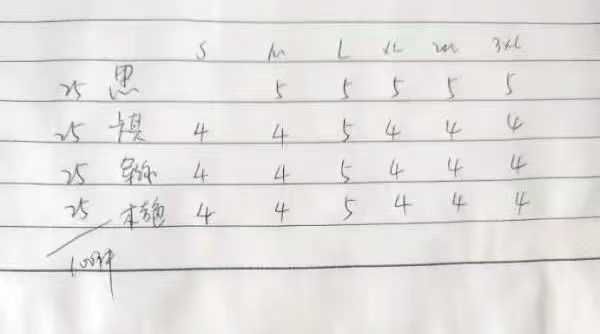 S M L XL 2XL 3XL
25 黑 5 5 5 5 5
25 卡其 4 4 5 4 4 4
25 军绿 4 4 5 4 4 4
25 4 4 5 4 4 4
100件